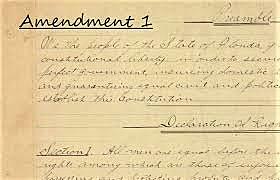 Amendment 1
Preamble
We the people of the State of Florida, g
constitutional liberty, in order to secure
perfect government, insuring domestic
and guaranteeing equal civil and politic
establish the Constitution
Declaration of Righ
Section 1. All men are equal before the
rights, among which are those of enjoy